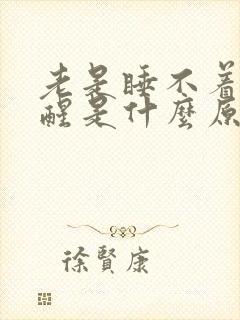 老是睡不着
醒是什麼原
徐賢康